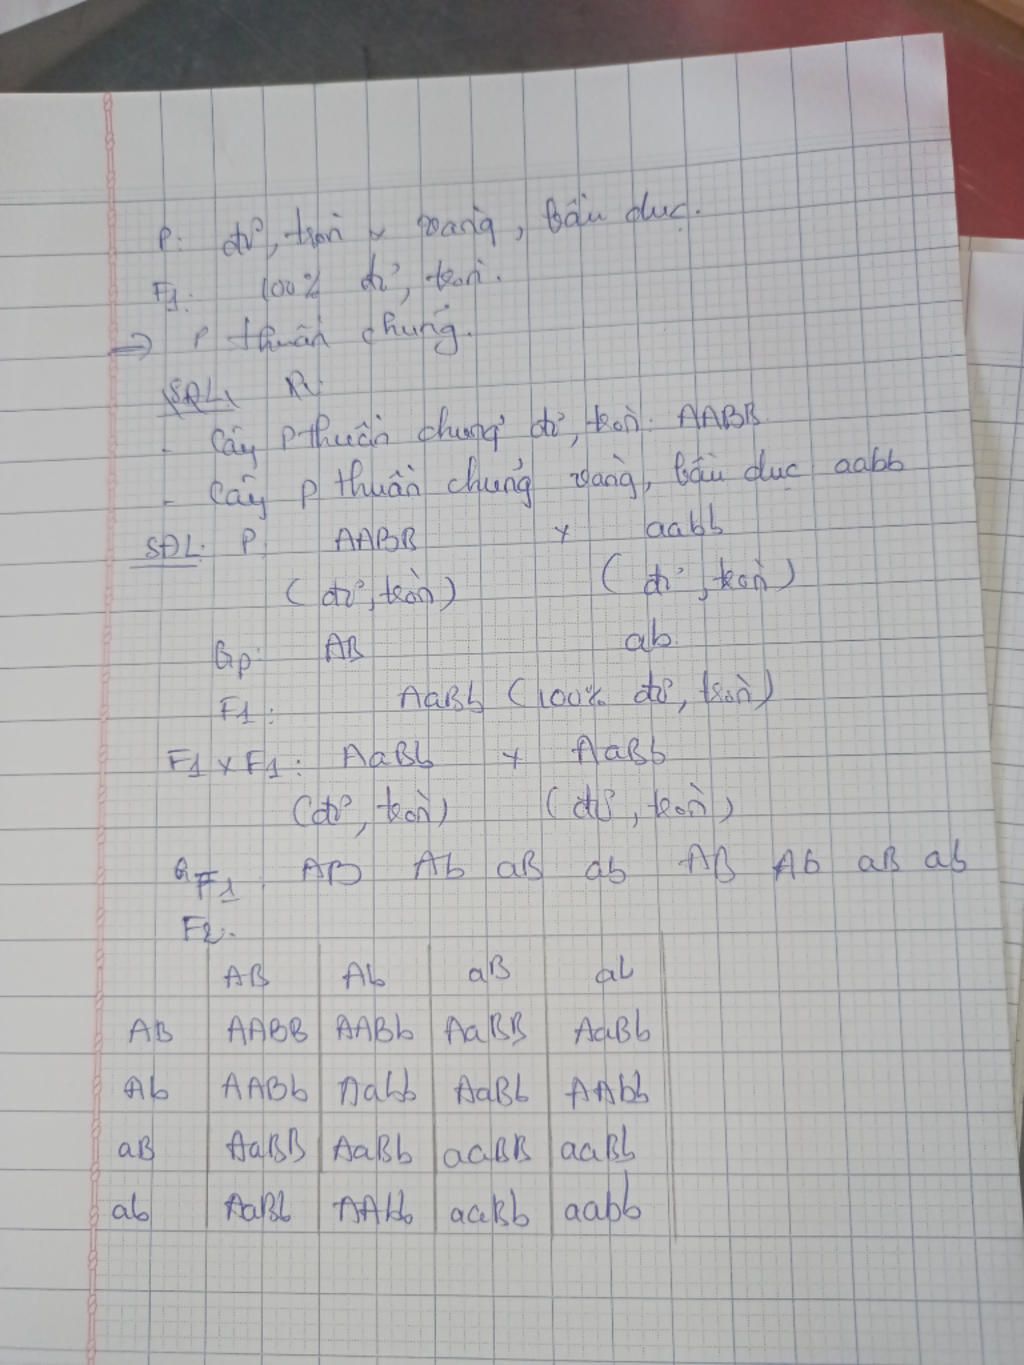 P: đỏ, tròn x vàng, bầu dục.
F1: 100% đỏ, tròn.
=> P thuần chủng.
SĐL
- Cây P thuần chủng đỏ, tròn: AABB
- Cây P thuần chủng vàng, bầu dục aabb
SĐL: P: AABB x aabb
(đỏ, tròn) (đỏ, tròn)
Gp: AB ab
F1: AaBb (100% đỏ, tròn)
F1 x F1: AaBb x AaBb
(đỏ, tròn) (đỏ, tròn)
GF1 AB Ab aB ab AB Ab aB ab
F2:
AB Ab aB ab
AB AABB AABb AaBB AaBb
Ab AABb Aabb AaBb AAbb
aB AaBB AaBb aaBB aaBb
ab AaBb AAbb aaBb aabb